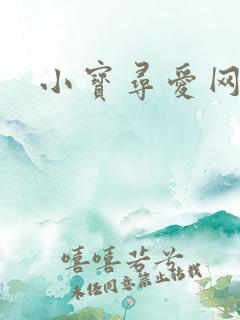 小寳尋愛网
嘻嘻若兮
未经同意禁止转载